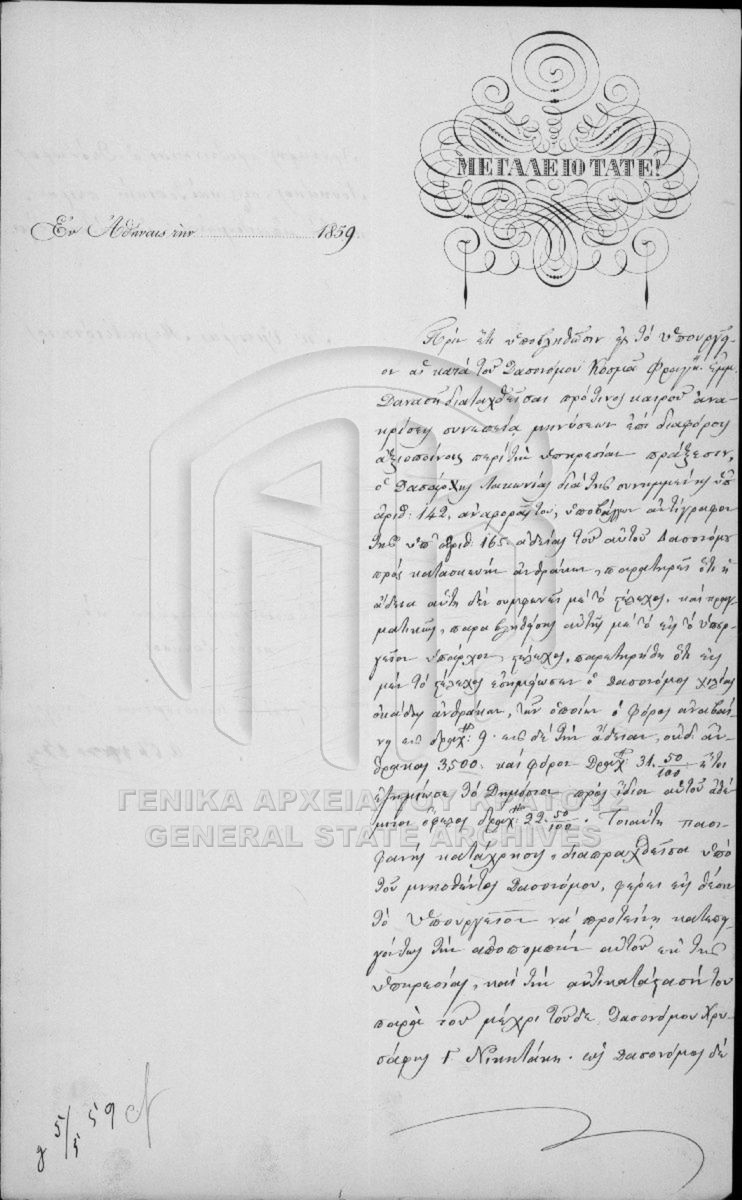 ΜΕΓΑΛΕΙΟΤΑΤΕ!
Ἐν Ἀθήναις τὴν 1859
Πρὶν ἔτι ὑποβληθῶσιν εἰς τὸ Ὑπουργεῖ-
ον αἱ κατὰ τοῦ Δασονόμου Κοσμᾶ Φραγκ. Ἐμμ.
Δανασῆ διαταχθεῖσαι πρό τινος καιροῦ ἀνα-
κρίσεις συνεπείᾳ μηνύσεων ἐπὶ διαφόροις
ἀξιοποίνοις περὶ τὴν ὑπηρεσίαν πράξεσιν,
ὁ Δασάρχης Λακωνίας διὰ τῆς συνημμένης ὑπ'
ἀριθ: 142, ἀναφορᾶς του, ὑποβάλλων ἀντίγραφον
τῆς ὑπ' ἀριθ: 165 ἀδείας τοῦ αὐτοῦ Δασονόμου
πρὸς κατασκευὴν ἀνθράκων, παρατηρεῖ ὅτι ἡ
ἄδεια αὕτη δὲν συμφωνεῖ μὲ τὸ στέλεχος, καὶ πραγ-
ματικῶς, παραβληθείσης αὐτῆς μὲ τὸ εἰς τὸ Ὑπουρ-
γεῖον ὑπάρχον στέλεχος, παρετηρήθη ὅτι εἰς
μὲν τὸ στέλεχος ἐσημείωσεν ὁ Δασονόμος χιλίας
ὀκάδας ἀνθράκων, τῶν ὁποίων ὁ φόρος ἀναβαί-
νει εἰς δραχ: 9. εἰς δὲ τὴν ἄδειαν, ὀκάδ. ἄν-
θρακος 3,500. καὶ φόρον Δραχ: 31.50/100. ἔτσι
ἐζημίωσε τὸ Δημόσιον πρὸς ἴδιον αὐτοῦ ἀθέ-
μιτον ὄφελος δραχ: 22.50/100. Τοιαύτη πασι-
φανὴς κατάχρησις, διαπραχθεῖσα ὑπὸ
τοῦ μνησθέντος Δασονόμου, φέρει εἰς θέσιν
τὸ Ὑπουργεῖον νὰ προτείνῃ κατεπει-
γόντως τὴν ἀποπομπὴν αὐτοῦ ἐκ τῆς
ὑπηρεσίας, καὶ τὴν ἀντικατάστασίν του
παρὰ τοῦ μέχρι τοῦδε Δασονόμου Χρυ-
σάφης Γ. Νικητάκη. ὡς Δασονόμος δὲ
5/5 59
ΓΕΝΙΚΑ ΑΡΧΕΙΑ ΤΟΥ ΚΡΑΤΟΥΣ
GENERAL STATE ARCHIVES